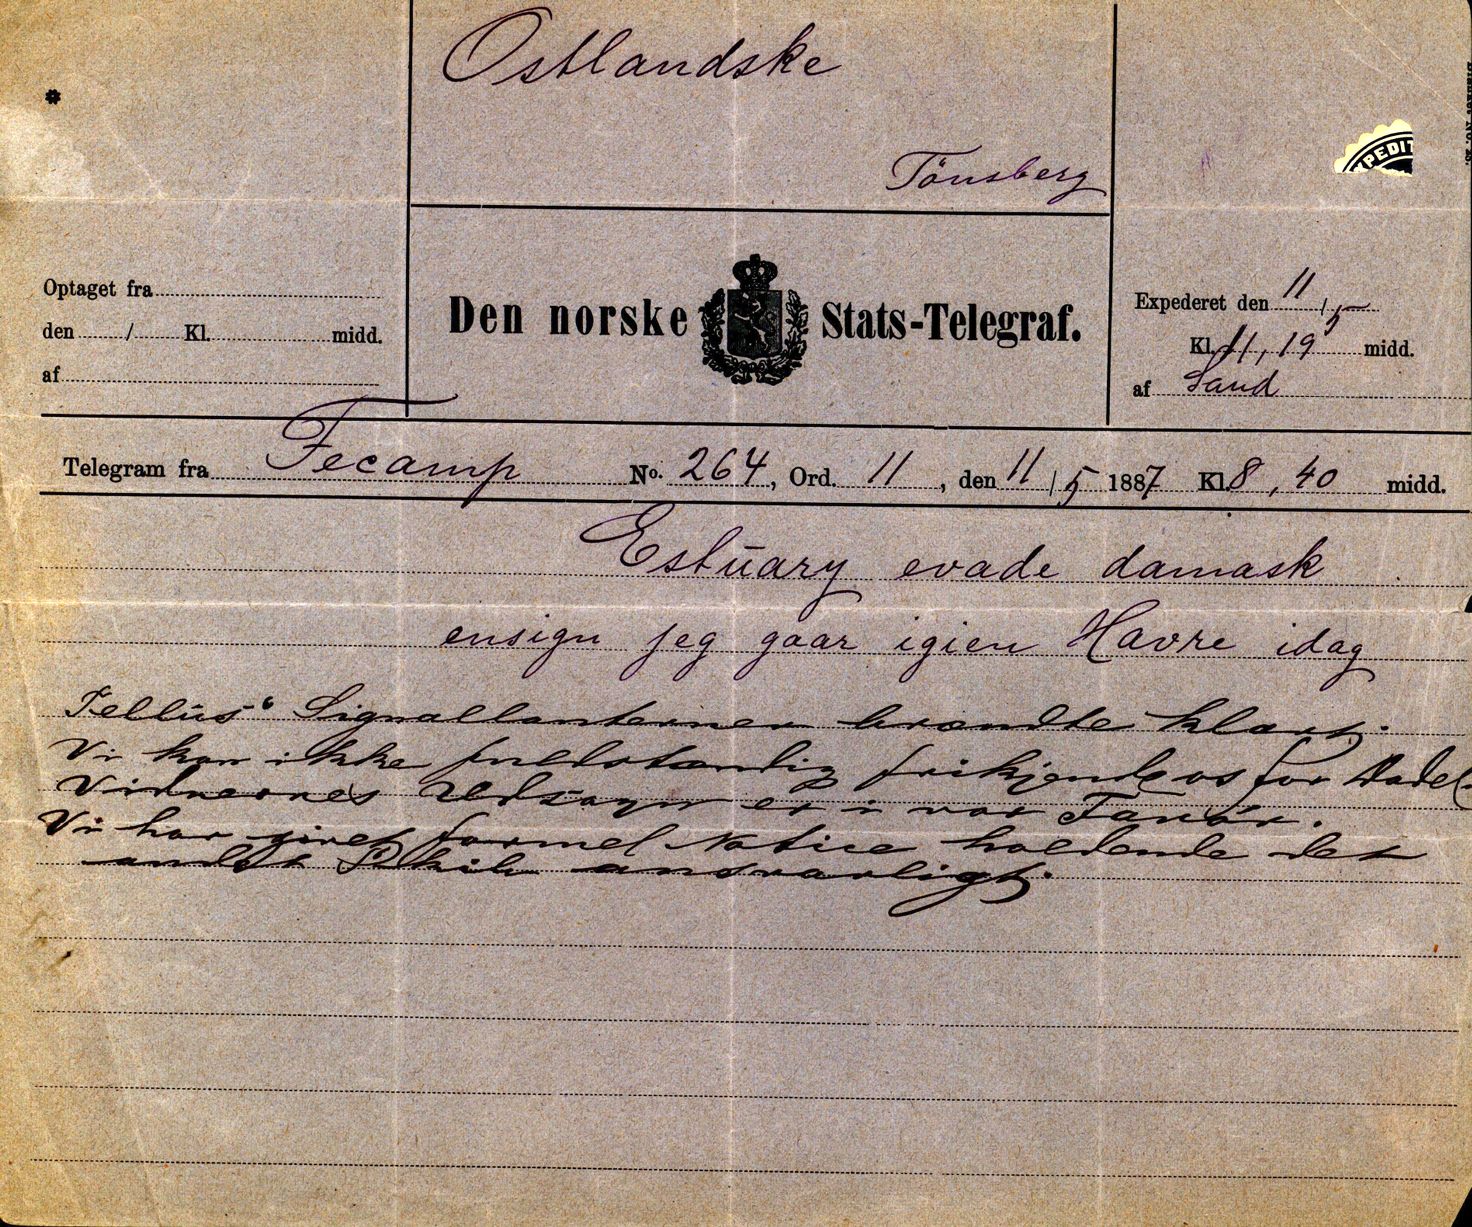 Ostlandske
Tönsberg
PEDIT
Optaget fra
den / Kl. midd.
af
Den norske Stats-Telegraf.
Expederet den 11/5
Kl. 11,19 midd.
af Sand
Telegram fra Fecamp No. 264, Ord. 11, den 11/5 1887 Kl. 8,40 midd.
Estuary evade damask
ensign jeg gaar igien Havre idag
Tellus' Signallanterner brændte klart.
Vi kan ikke fuldstændig frikjende os for Dadel.
Vidnernes Udsagn er i vor Favör.
Vi har givet formel Notice holdende det
andet Skib ansvarligt.